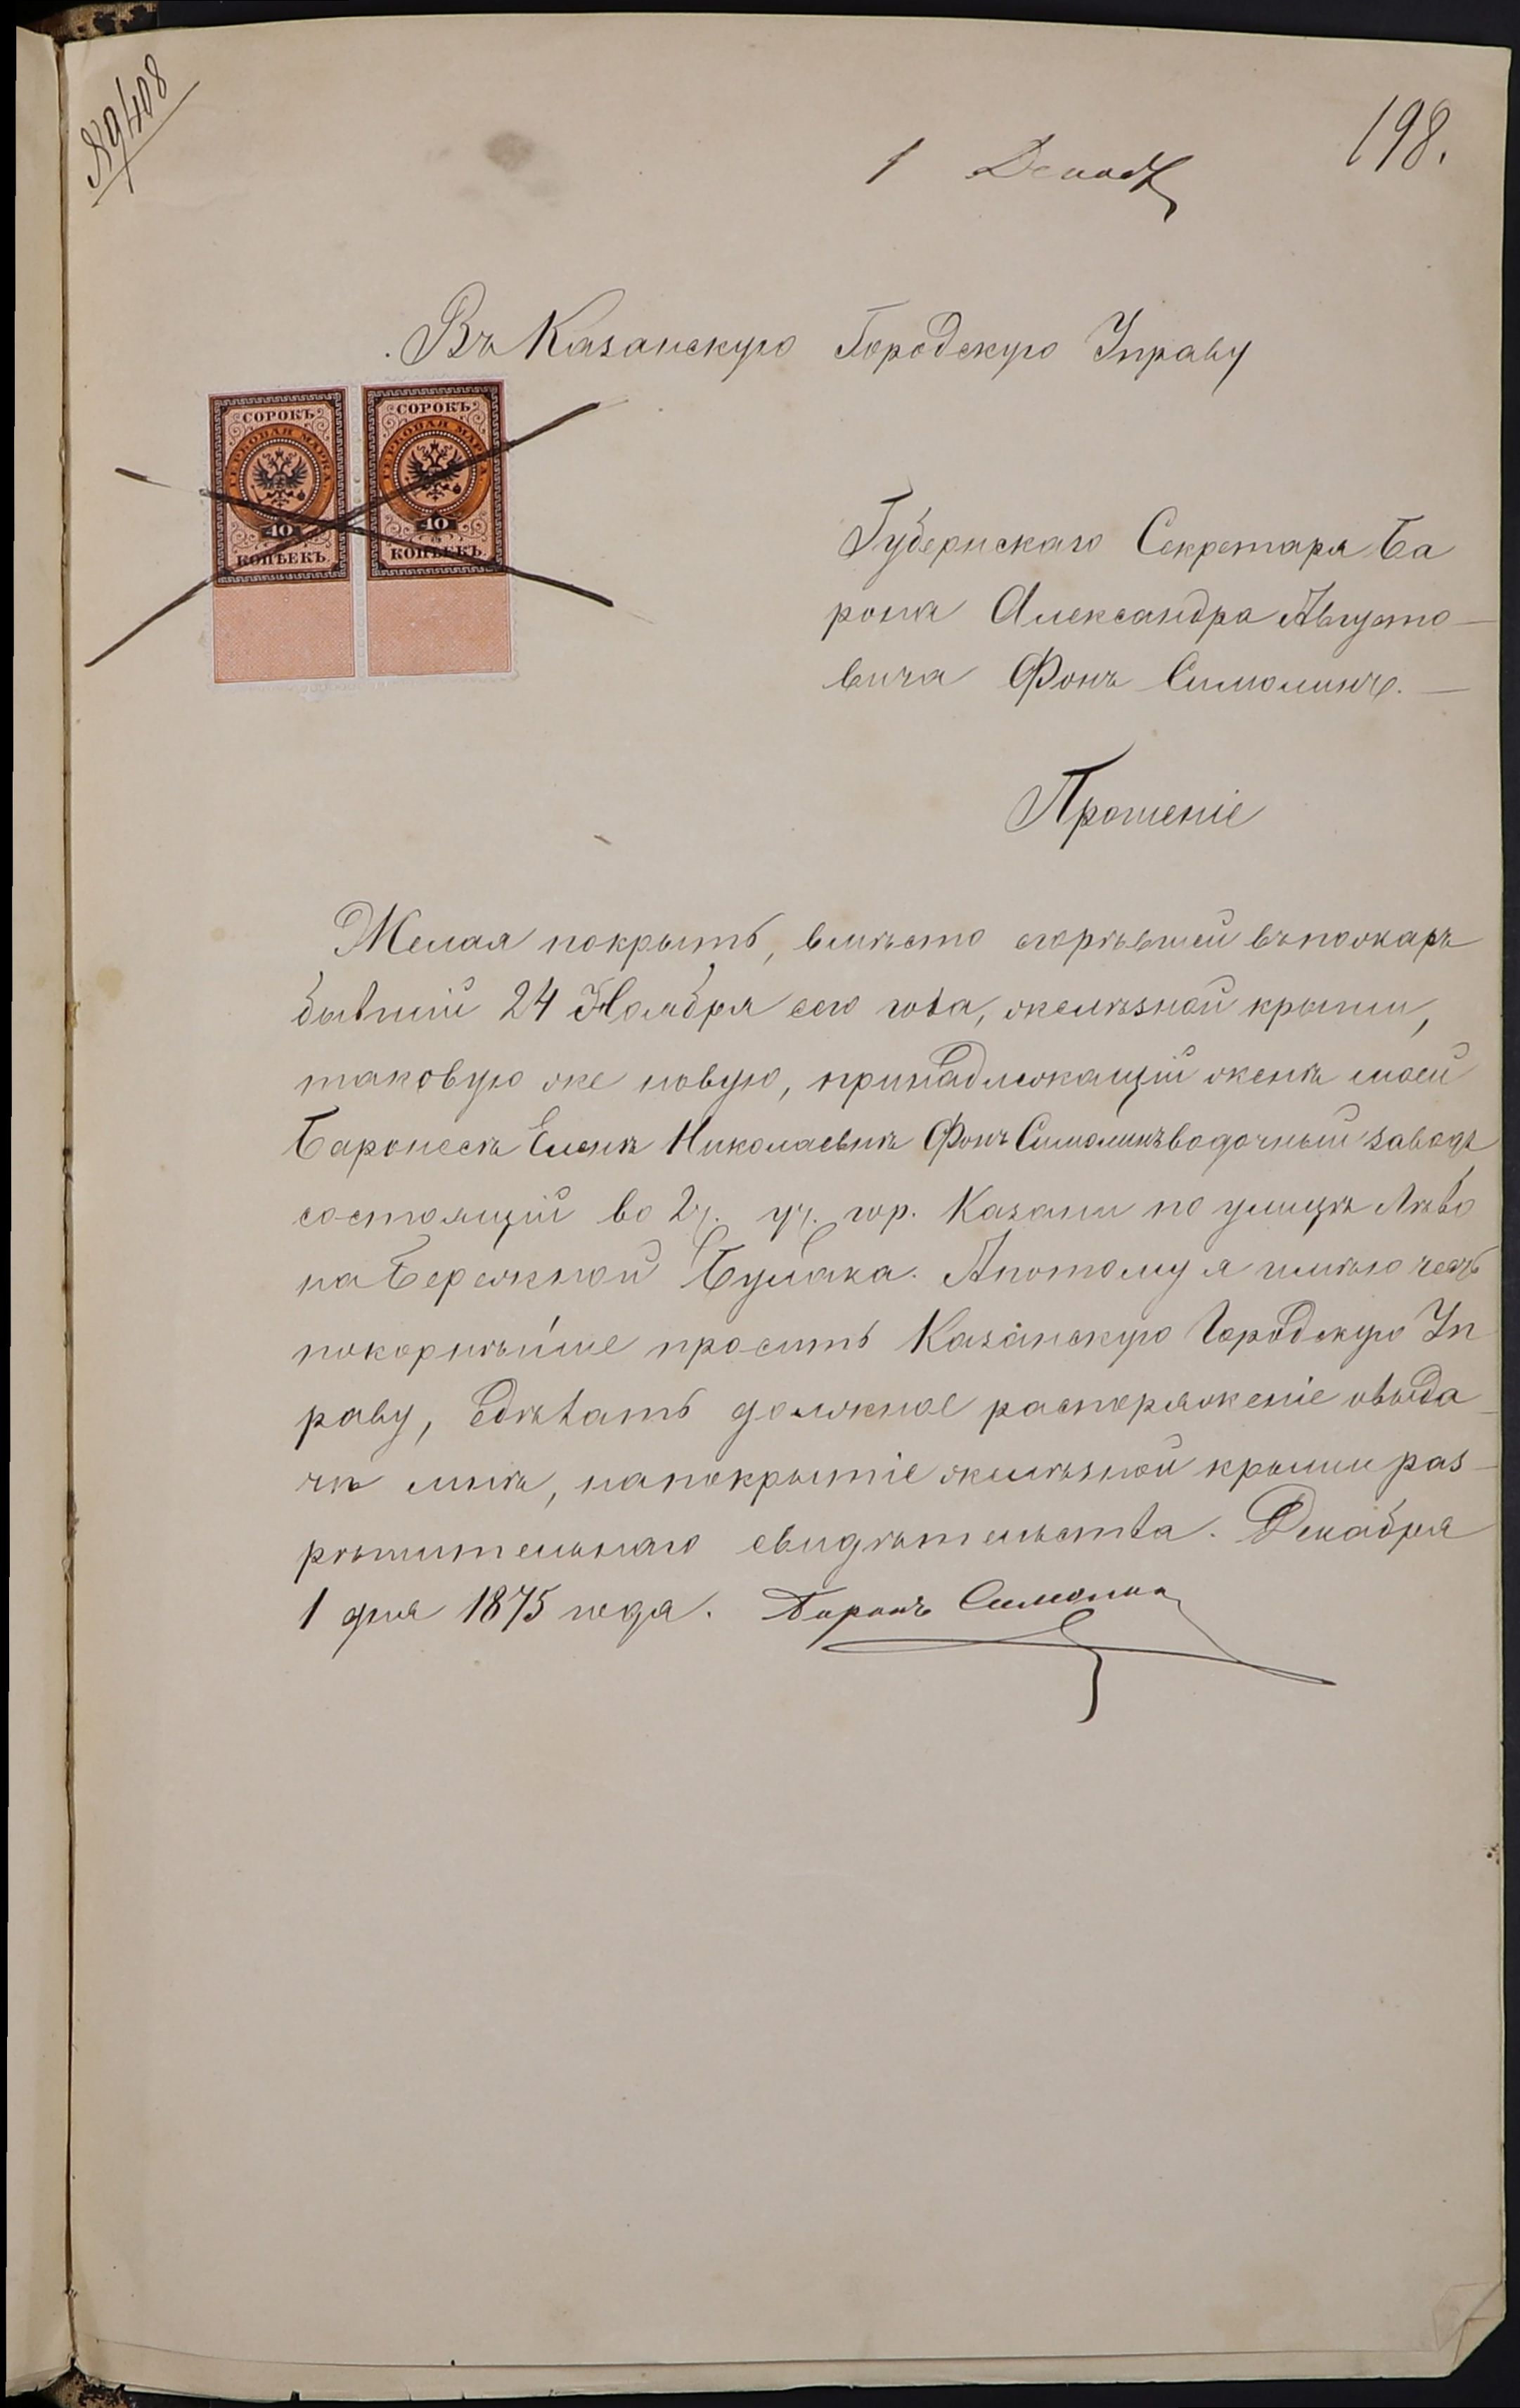 № 9408
198.
1 Декаб
Въ Казанскую Городскую Управу
СОРОКЪ
ГЕРБОВАЯ МАРКА
40
КОПѢЕКЪ
СОРОКЪ
ГЕРБОВАЯ МАРКА
40
КОПѢЕКЪ
Губернскаго Секретаря Ба
рона Александра Августо-
вича Фонъ Симолинъ. —
Прошеніе
Желая покрыть, вмѣсто сгорѣвшей въ пожаръ
бывшій 24 Ноября сего года, желѣзной крыши,
таковую же новую, принадлежащій женѣ моей
Баронесѣ Еленѣ Николаевнѣ Фонъ Симолинъ водочный заводъ
состоящій во 2 ч. уч. гор. Казани по улицѣ Лѣво
набережной Булака. А потому я имѣю честь
покорнѣйше просить Казанскую Городскую Уп
раву, сдѣлать должное распоряженіе о выда-
чѣ мнѣ, на покрытіе желѣзной крыши раз-
рѣшительнаго свидѣтельства. Декабря
1 дня 1875 года. Баронъ Симолин